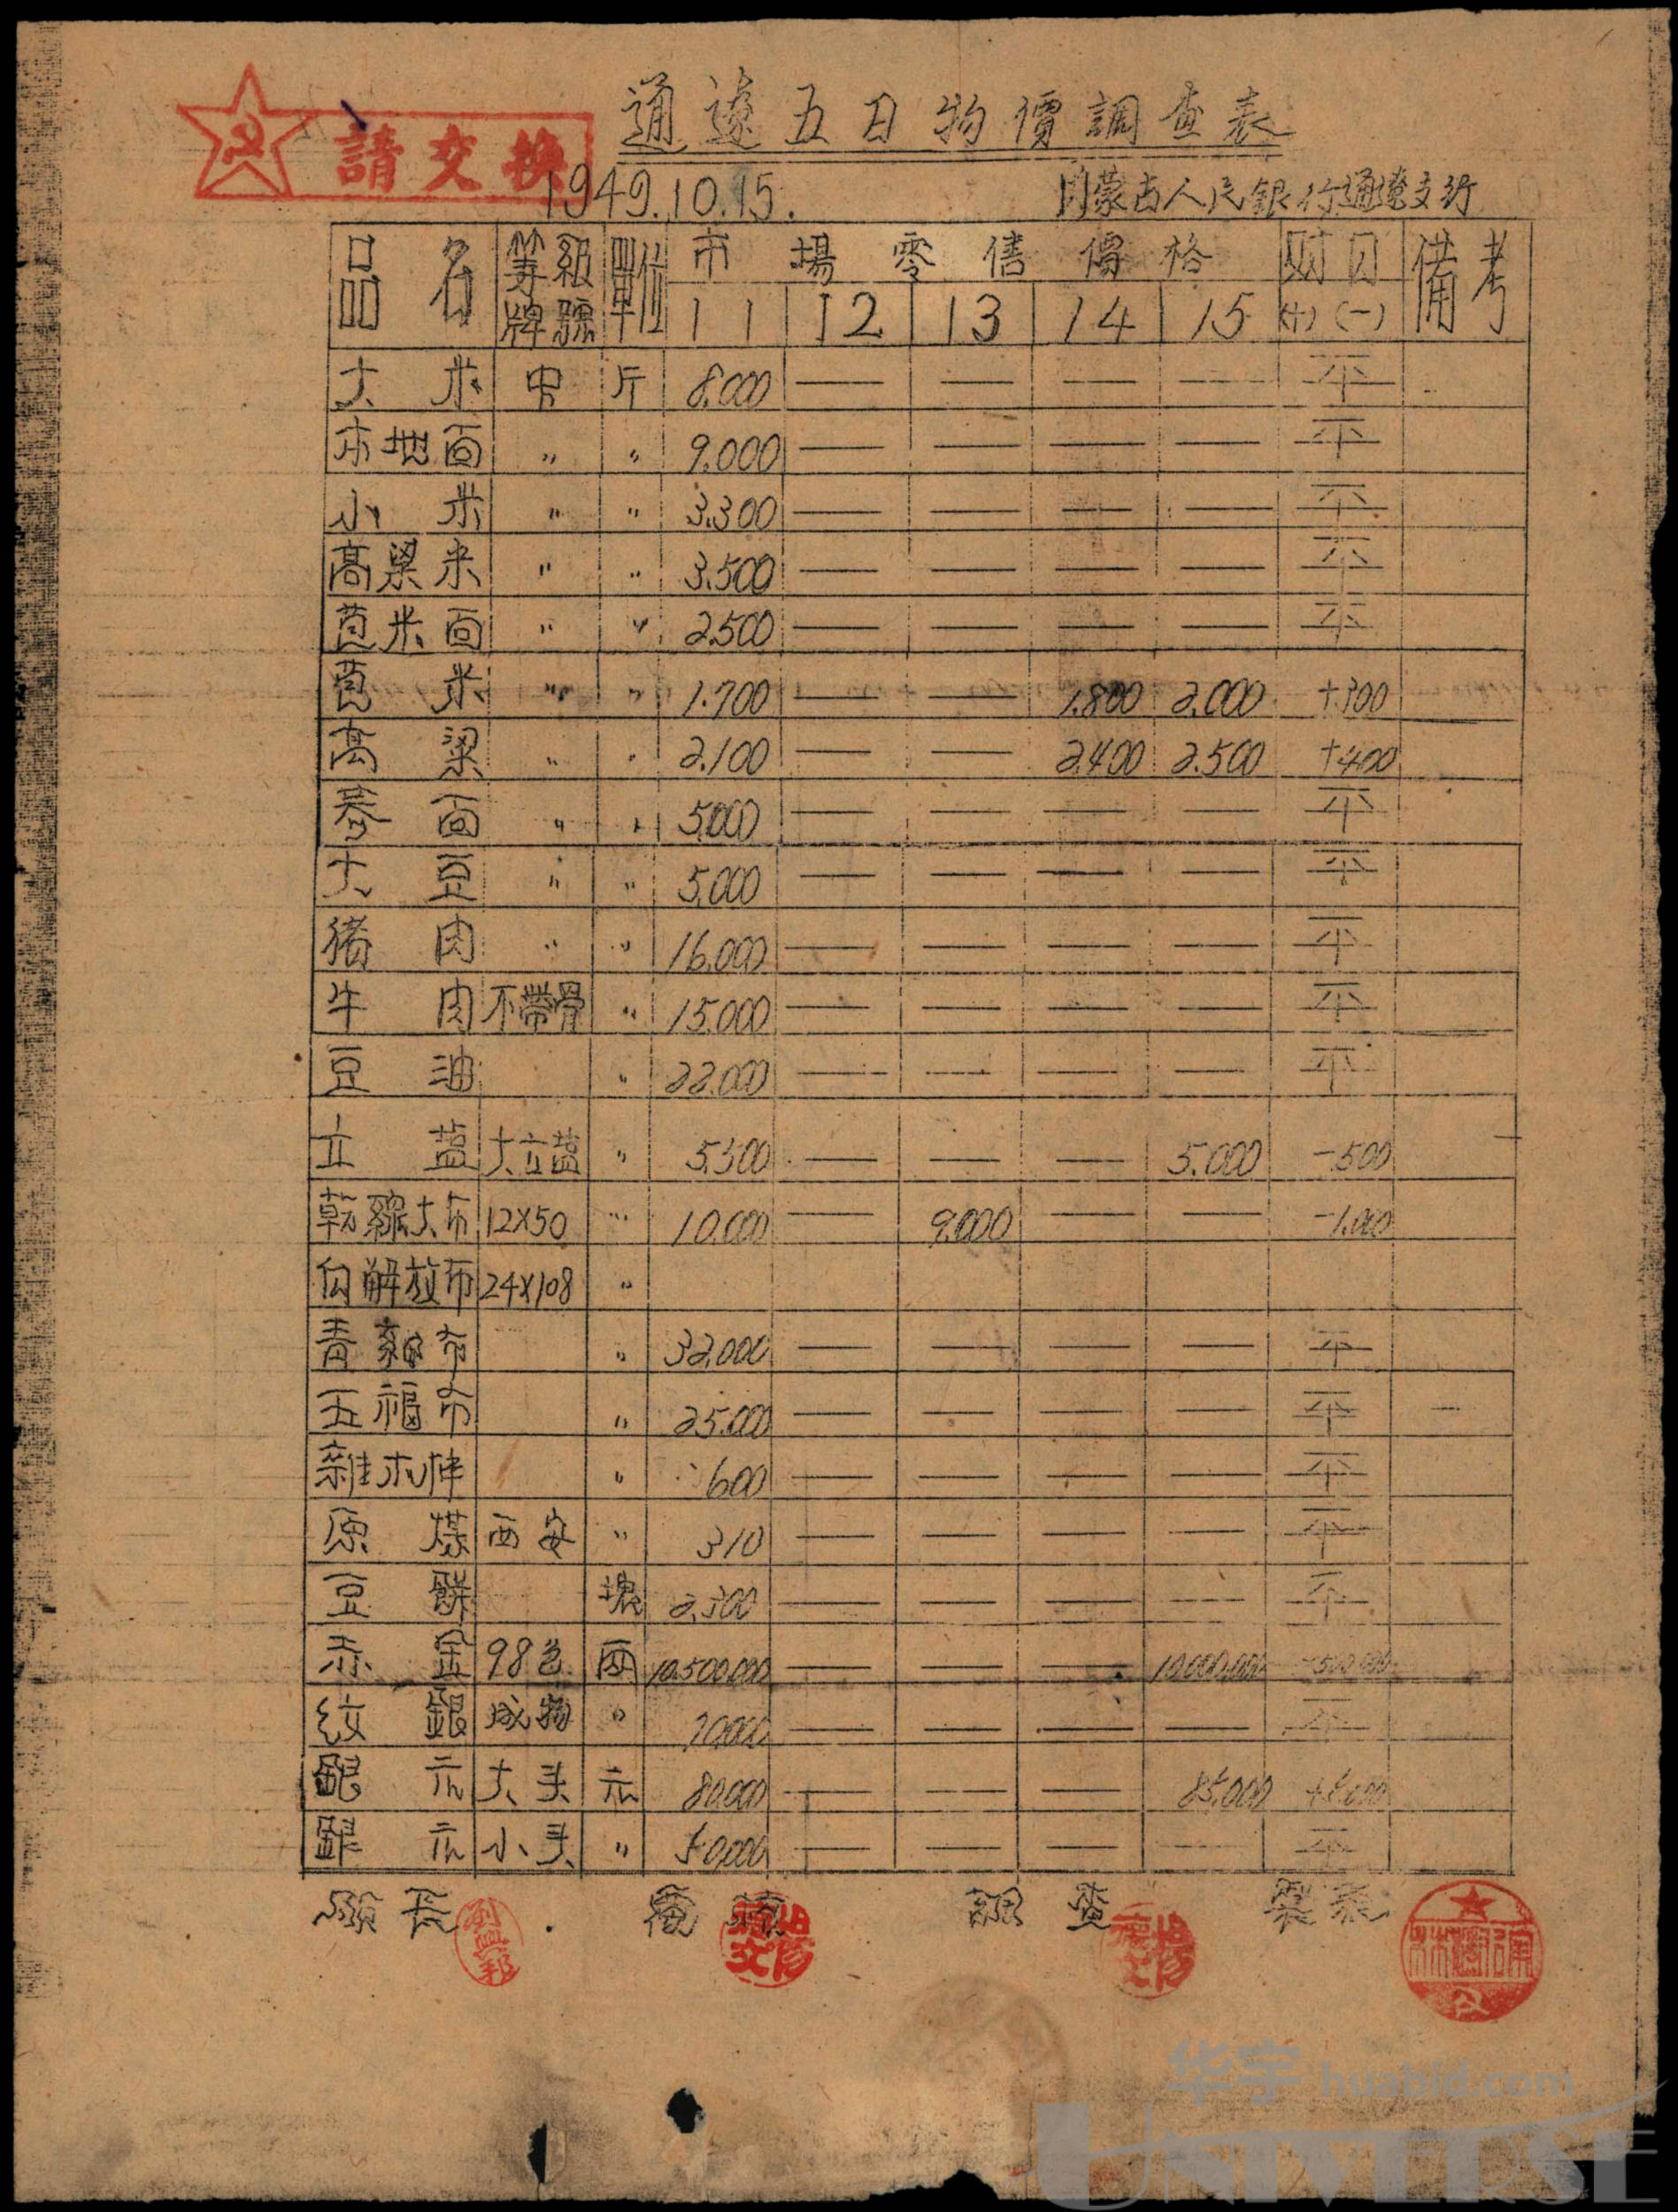 請交換
通遼五日物價調查表
1949.10.15.
内蒙古人民銀行通遼支行
品名 等級牌號 單位 市場零售價格 備考
11 12 13 14 15 (+) (一)
大米 中 斤 8.000 — — — — 平
本地面 〃 〃 9.000 — — — — 平
小米 〃 〃 3.300 — — — — 平
高粱米 〃 〃 3.500 — — — — 平
苞米面 〃 〃 2.500 — — — — 平
苞米 〃 〃 1.700 — — 1.800 2.000 +300
高粱 〃 〃 2.100 — — 2.400 2.500 +400
面 〃 〃 5.000 — — — — 平
大豆 〃 〃 5.000 — — — — 平
猪肉 〃 〃 16.000 — — — — 平
牛肉 不帶骨 〃 15.000 — — — — 平
豆油 〃 22.000 — — — — 平
立盐 大立盐 〃 — — — 5.000 -500
線大布 12X50 〃 10.000 — 9.000 — — -1.000
白解放布 24X108 〃
青布 〃 32.000 — — — — 平
五福布 〃 25.000 — — — — 平
雜木柈 〃 600 — — — — 平
原煤 西安 〃 310 — — — — 平
豆餅 塊 — — — — 平
赤金 98色 両 10.500.000 — — — 10.000.000 -500.000
紋銀 成物 〃 — — — — 平
銀元 大头 元 80.000 — — — 85.000
銀元 小头 〃 50.000 — — — — 平
長
調查
华宇 huabid.com
UNIVERSE